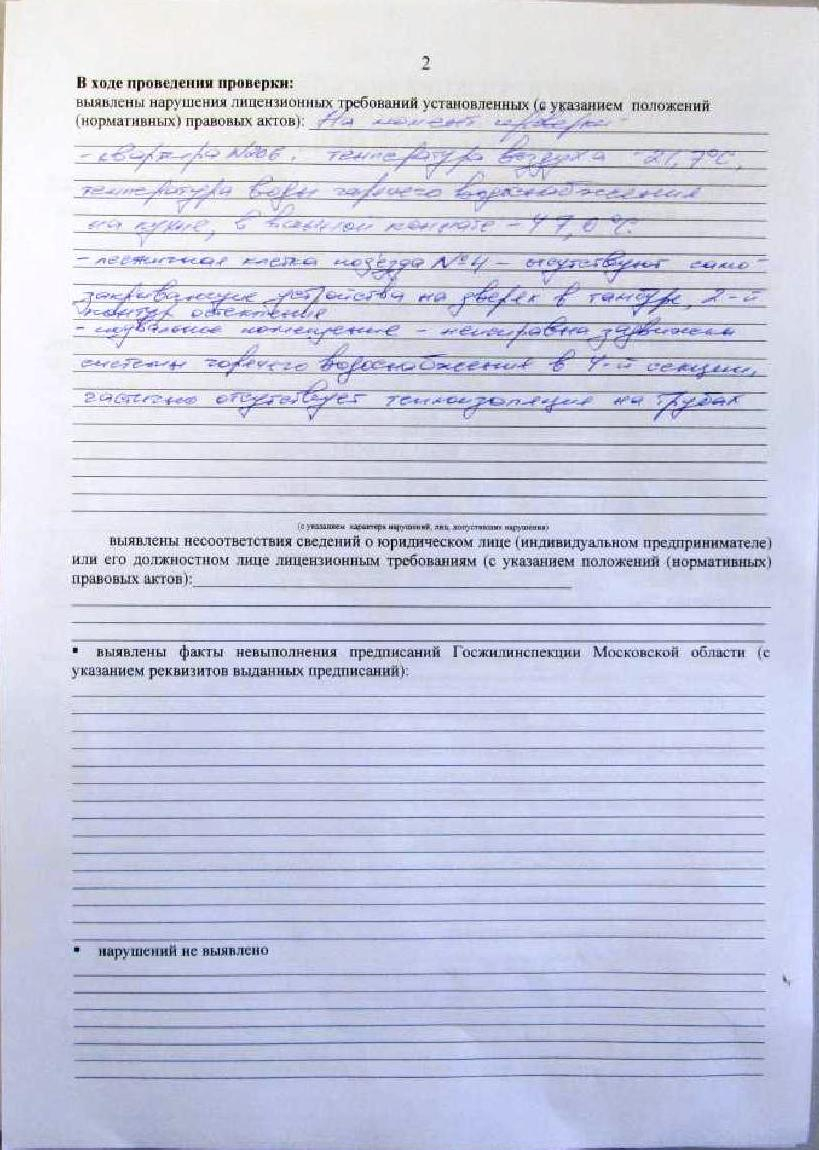 2
В ходе проведения проверки:
выявлены нарушения лицензионных требований установленных (с указанием положений
(нормативных) правовых актов): На момент проверки
- квартира №206, температура воздуха - 21,7°С,
температура воды горячего водоснабжения
на кухне, в ванной комнате - 47,0°С.
- лестничная клетка подъезда №4 - отсутствуют само-
закрывающие устройства на дверях в тамбур, 2-й
контур остекления
- подвальное помещение - неисправна задвижка
системы горячего водоснабжения в 4-й секции,
частично отсутствует теплоизоляция на трубах
(с указанием характера нарушений, лиц, допустивших нарушения)
выявлены несоответствия сведений о юридическом лице (индивидуальном предпринимателе)
или его должностном лице лицензионным требованиям (с указанием положений (нормативных)
правовых актов):
▪ выявлены факты невыполнения предписаний Госжилинспекции Московской области (с
указанием реквизитов выданных предписаний):
▪ нарушений не выявлено